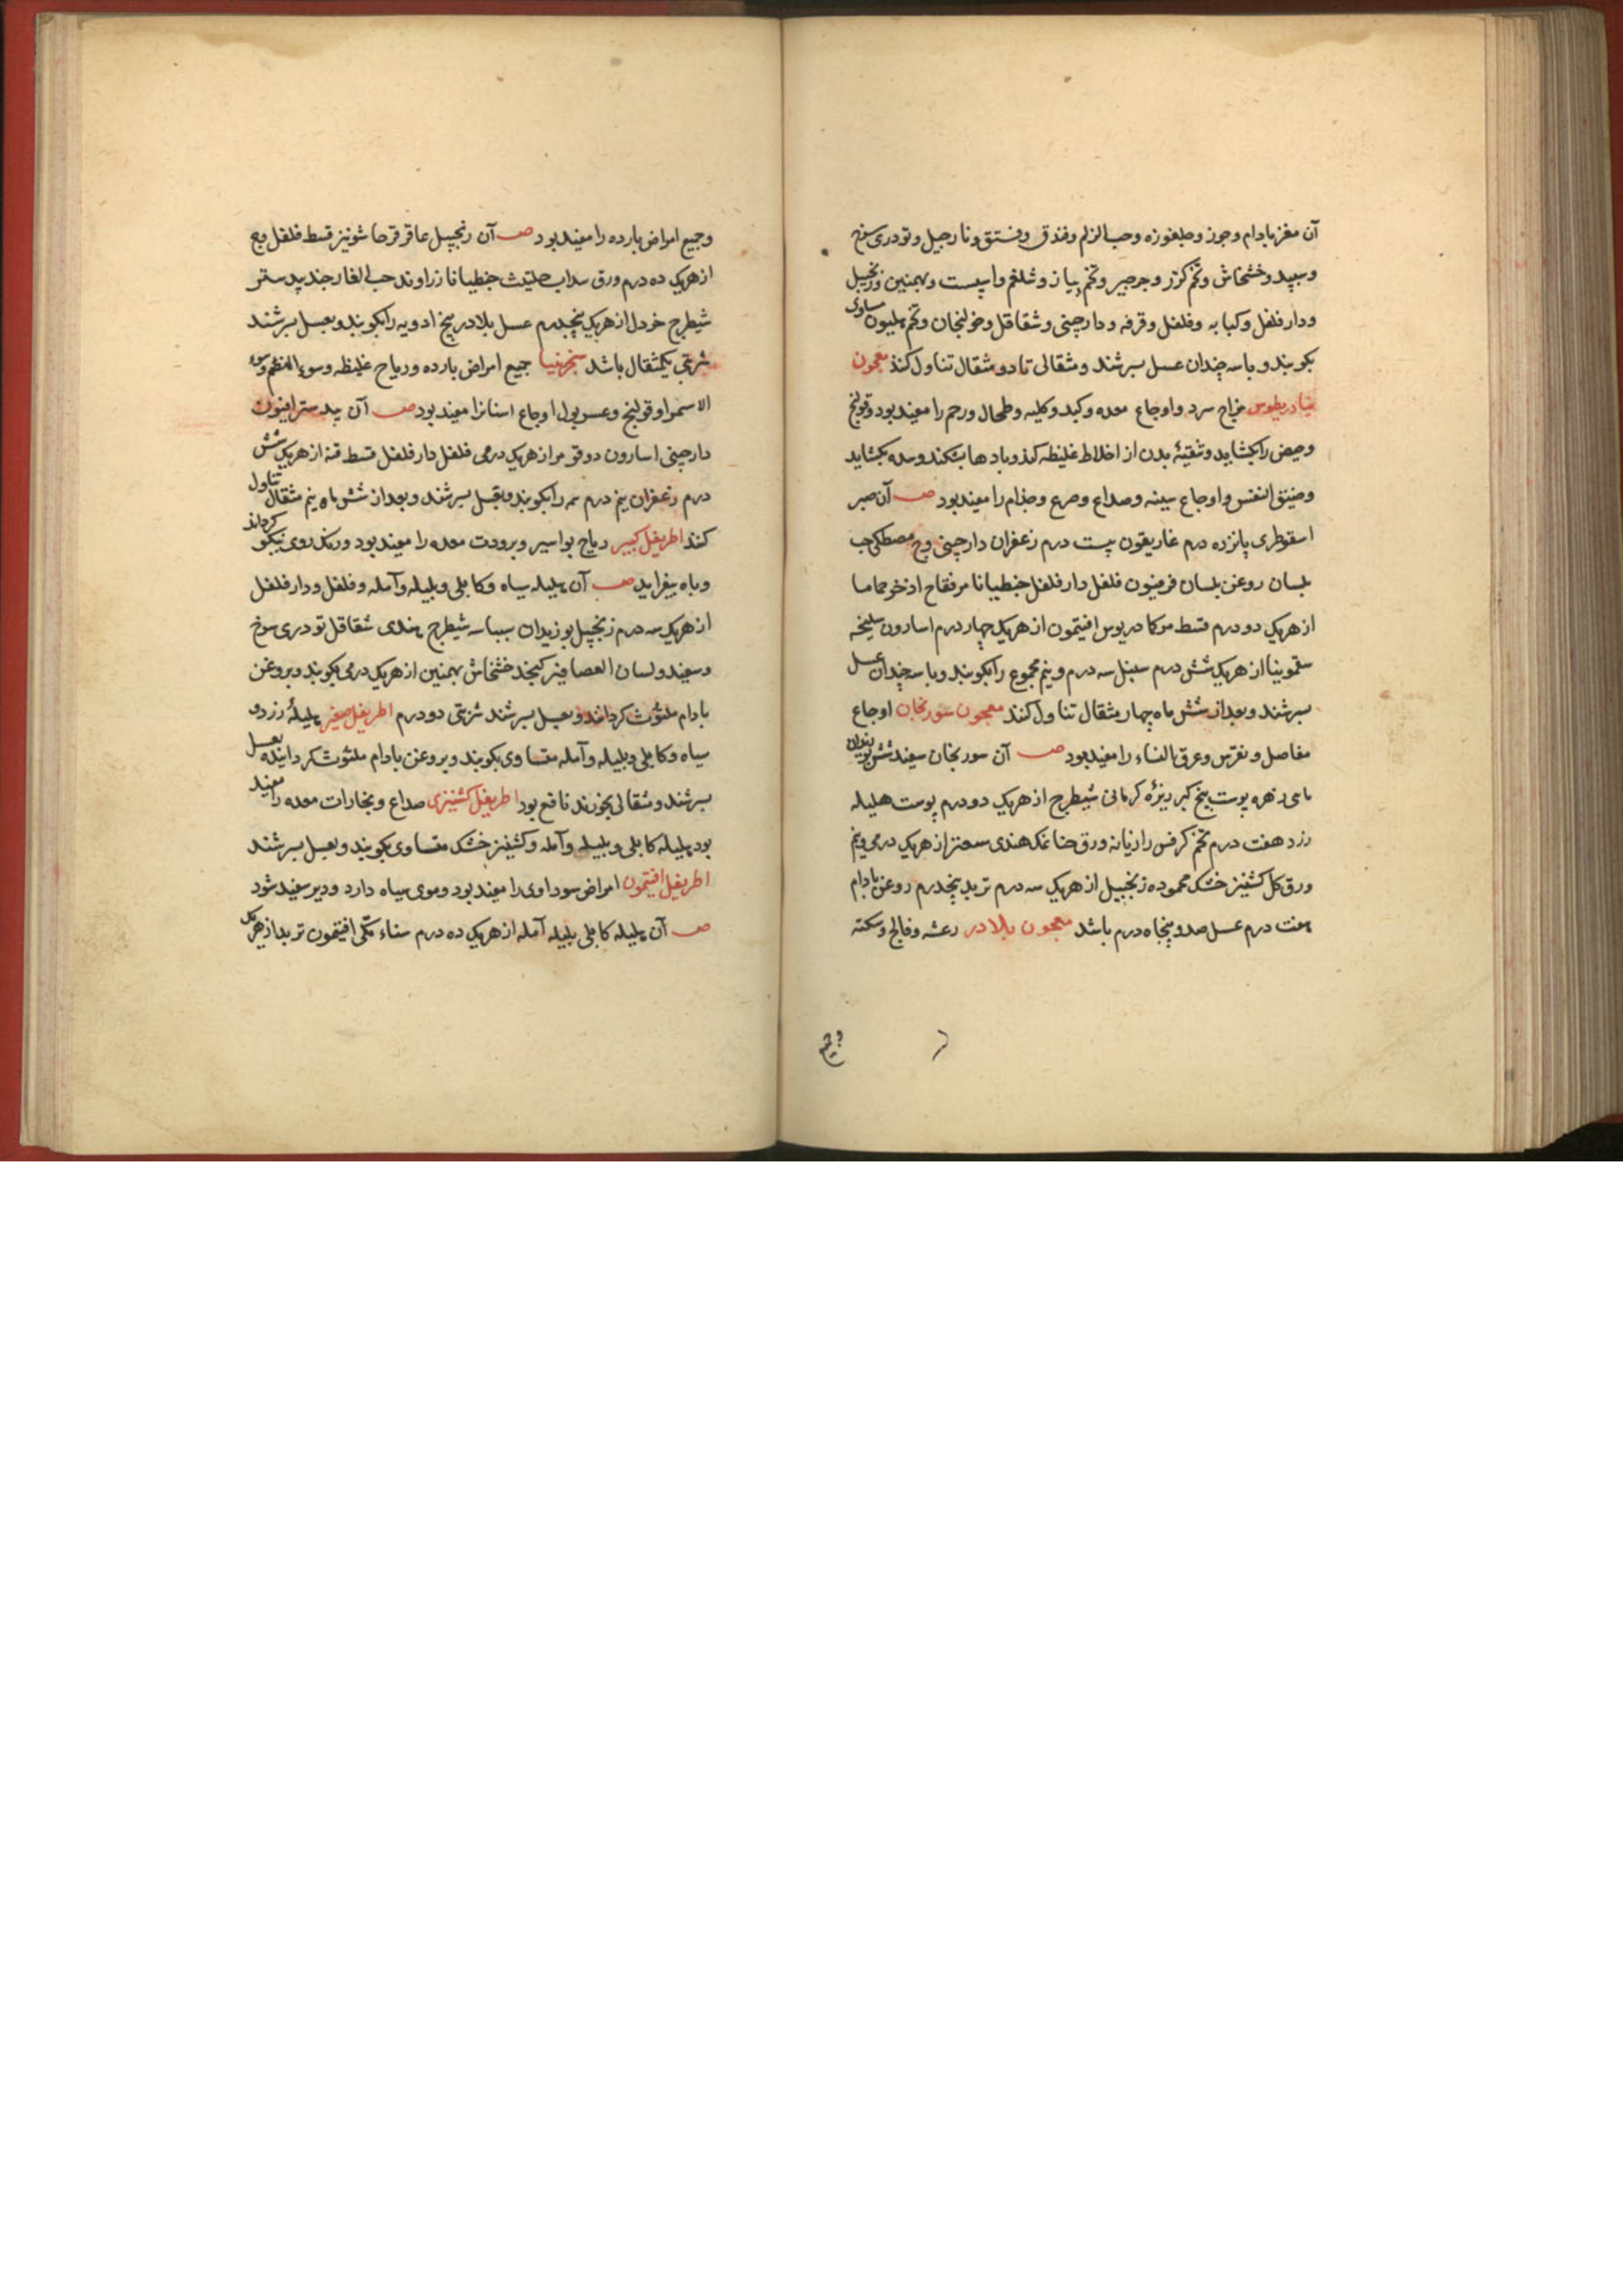 آن مغز بادام و جوز و جلغوزه و حب الزلم و فندق و فستق و نارجیل و تودری سرخ
و سپید و خشخاش و تخم کزر و جرجیر و تخم پیاز و شلغم و اسپست و بهمنین و زنجبیل
و دار فلفل و کبابه و فلفل و قرفه و دارچینی و شقاقل و خولنجان و تخم هلیون مساوی
بکوبند و با سه چندان عسل بسرشند و مثقالی تا دو مثقال تناول کنند معجون
تیادریطوس مزاج سرد و اوجاع معده و کبد و کلیه و طحال و رحم را مفید بود و قولنج
و حیض را بکشاید و تنقیهٔ بدن از اخلاط غلیظه کند و بادها بشکند و سده بکشاید
و ضیق النفس و اوجاع سینه و صداع و صرع و جذام را مفید بود صـ آن صبر
اسقوطری پانزده درم غاریقون بیست درم زعفران دارچینی وج مصطکی حب
بلسان روغن بلسان فرفیون فلفل دار فلفل جنطیانا مر فقاح اذخر حماما
از هریک دو درم قسط مر کمادریوس افتیمون از هریک چهار درم اسارون سلیخه
سقمونیا از هریک شش درم سنبل سه درم و نیم مجموع را بکوبند و با سه چندان عسل
بسرشند و بعد از شش ماه چهار مثقال تناول کنند معجون سورنجان اوجاع
مفاصل و نقرس و عرق النساء را مفید بود صـ آن سورنجان سفید شش بوزیدان
ماهی زهره پوست بیخ کبر زیرهٔ کرمانی شیطرج از هریک دو درم پوست هلیله
زرد هفت درم تخم کرفس رازیانه ورق حنا نمک هندی سعتر از هریک درمی و نیم
ورق گل کشنیز خشک محموده زنجبیل از هریک سه درم تربد پنجدرم روغن بادام
هفت درم عسل صد و پنجاه درم باشد معجون بلادر رعشه و فالج و سکته
و جمیع
و جمیع امراض بارده را مفید بود صـ آن زنجبیل عاقرقرحا شونیز قسط فلفل وج
از هریک ده درم ورق سداب حلتیث جنطیانا زراوند حب الغار جند بیدستر
شیطرج خردل از هریک پنجدرم عسل بلادر پنج ادویه را بکوبند و بعسل بسرشند
شربتی یکمثقال باشد سنجرنیا جمیع امراض بارده و ریاح غلیظه و سوء الهضم و
الاستمراء و قولنج و عسر بول و اوجاع اسنانرا مفید بود صـ آن بیدستر افیون
دارچینی اسارون دوقو مر از هریک درمی فلفل دار فلفل قسط قنه از هریک شش
درم زعفران نیم درم همه را بکوبند و بعسل بسرشند و بعد از شش ماه نیم مثقال تناول
کنند اطریفل کبیر ریاح بواسیر و برودت معده را مفید بود و رنگ روی نیکو کرداند
و باه بیفزاید صـ آن هلیله سیاه و کابلی و بلیله و آمله و فلفل و دار فلفل
از هریک سه درم زنجبیل بوزیدان بسباسه شیطرج هندی شقاقل تودری سرخ
و سفید و لسان العصافیر کنجد خشخاش بهمنین از هریک درمی بکوبند و بروغن
بادام ملثوث کردانند و بعسل بسرشند شربتی دو درم اطریفل صغیر هلیلهٔ زرد و
سیاه و کابلی و بلیله و آمله متساوی بکوبند و بروغن بادام ملثوث کردانیده بعسل
بسرشند و مثقالی بخورند نافع بود اطریفل کشنیزی صداع و بخارات معده را مفید
بود هلیله کابلی و بلیله و آمله و کشنیز خشک متساوی بکوبند و بعسل بسرشند
اطریفل افتیمون امراض سوداوی را مفید بود و موی سیاه دارد و دیر سفید شود
صـ آن هلیله کابلی بلیله آمله از هریک ده درم سناء مکی افتیمون تربد از هریک